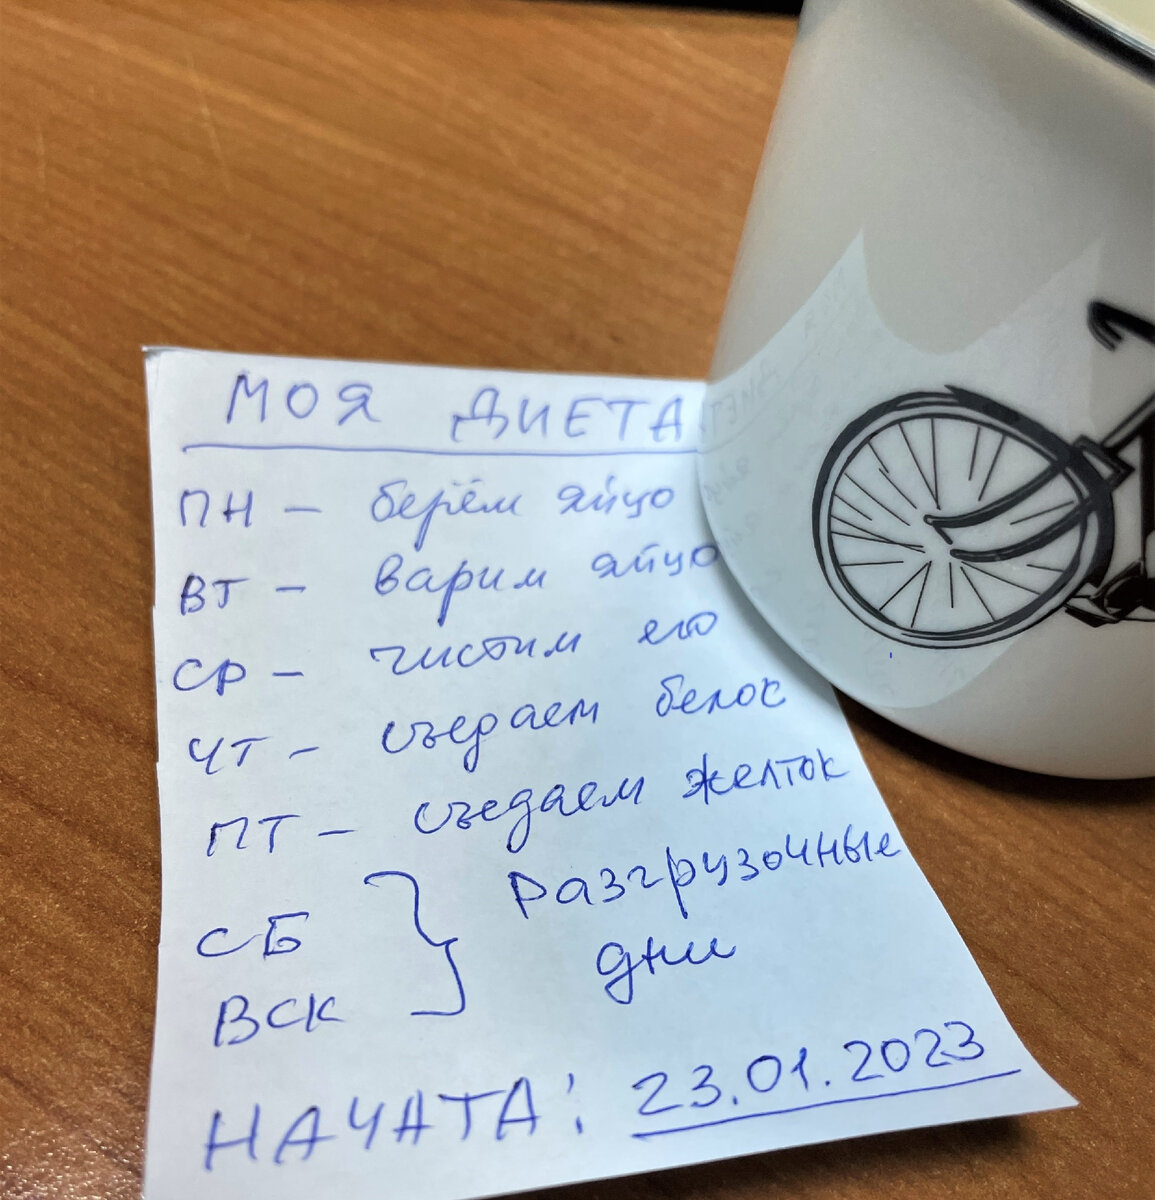 МОЯ ДИЕТА
ПН - берём яйцо
ВТ - варим яйцо
СР - чистим его
ЧТ - съедаем белок
ПТ - съедаем желток
СБ } Разгрузочные
ВСК дни
НАЧАТА: 23.01.2023